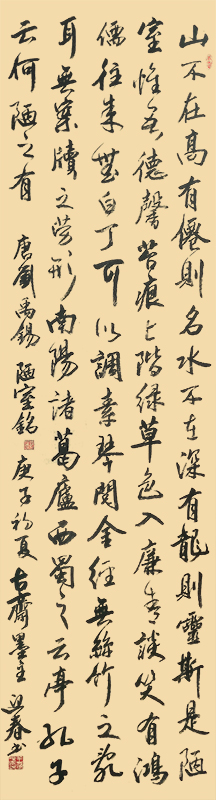 山不在高有僊則名水不在深有龍則靈斯是陋
室惟吾德馨苔痕上階綠草色入廉青談笑有鴻
儒往来無白丁可以調素琴閱金經無絲竹之亂
耳無案牘之勞形南陽諸葛廬西蜀子云亭孔子
云何陋之有 唐劉禹錫 陋室銘 庚子初夏 古齋墨主 迎春書